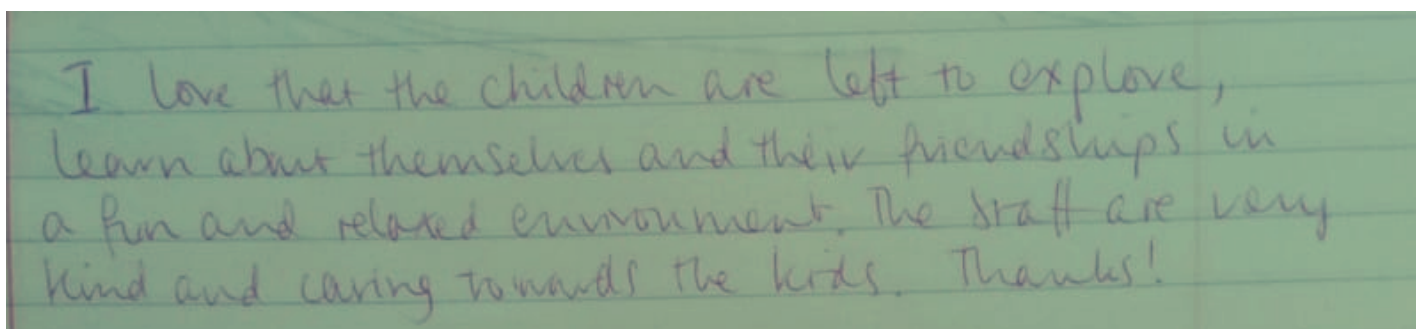 I love that the children are left to explore,
learn about themselves and their friendships in
a fun and relaxed environment. The staff are very
kind and caring towards the kids. Thanks!